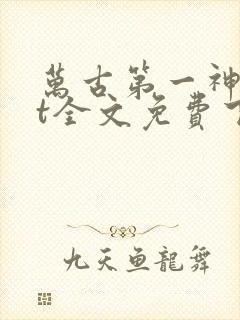 萬古第一神
t全文免費下
九天魚龍舞